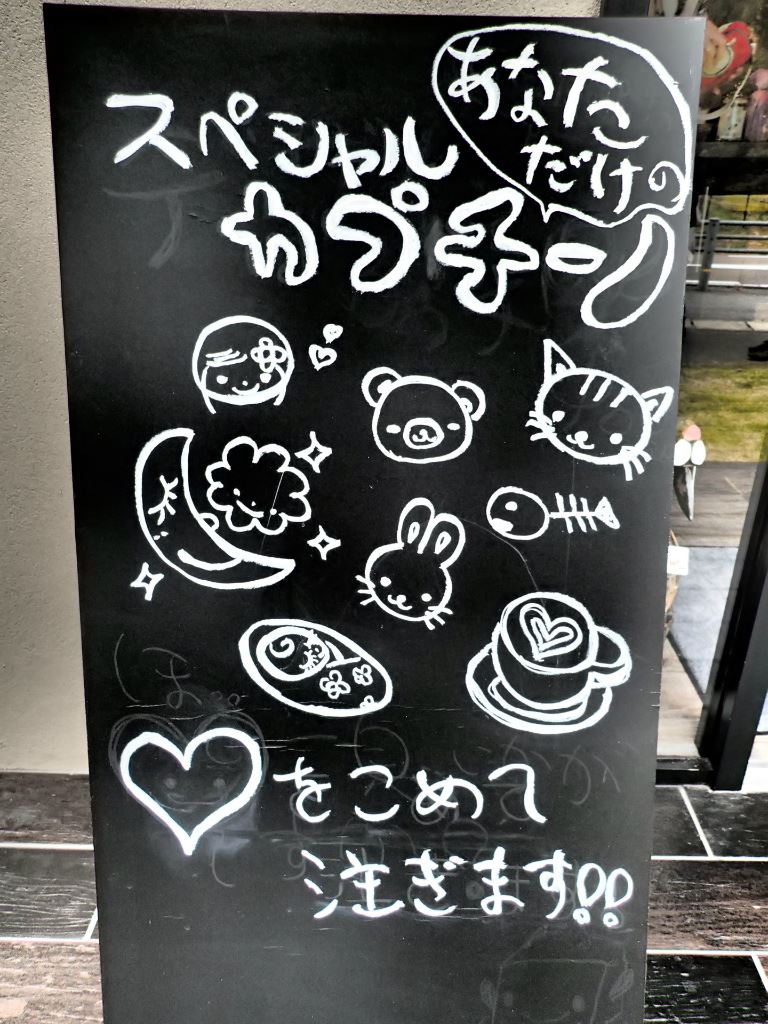 あなた
だけの
スペシャル
カプチーノ
♡をこめて
注ぎます!!